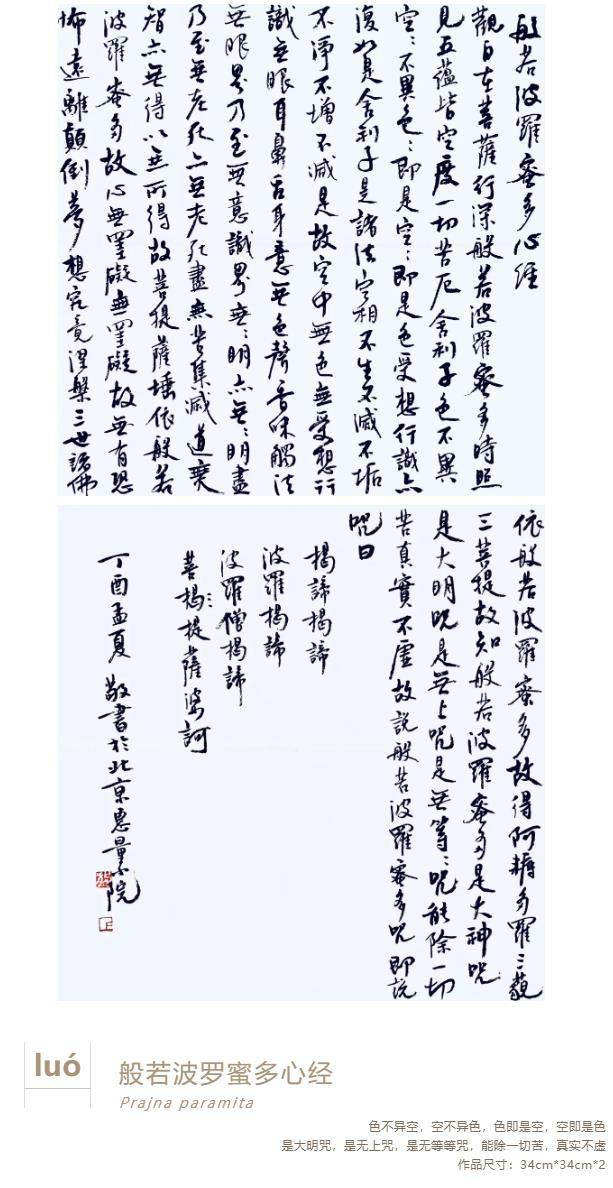 般若波羅蜜多心經
觀自在菩薩行深般若波羅蜜多時照
見五蘊皆空度一切苦厄舍利子色不異
空〻不異色〻即是空〻即是色受想行識亦
復如是舍利子是諸法空相不生不滅不垢
不淨不增不減是故空中無色無受想行
識無眼耳鼻舌身意無色聲香味觸法
無眼界乃至無意識界無〻明亦無〻明盡
乃至無老死亦無老死盡無苦集滅道無
智亦無得以無所得故菩提薩埵依般若
波羅蜜多故心無罣礙無罣礙故無有恐
怖遠離顛倒夢想究竟涅槃三世諸佛
依般若波羅蜜多故得阿耨多羅三藐
三菩提故知般若波羅蜜多是大神咒
是大明咒是無上咒是無等〻咒能除一切
苦真實不虛故說般若波羅蜜多咒即說
咒曰
揭諦揭諦
波羅揭諦
波羅僧揭諦
菩揭提薩婆訶
丁酉孟夏 敬書於北京惠量小院
luó
般若波罗蜜多心经
Prajna paramita
色不异空，空不异色，色即是空，空即是色
是大明咒，是无上咒，是无等等咒，能除一切苦，真实不虚
作品尺寸：34cm*34cm*2